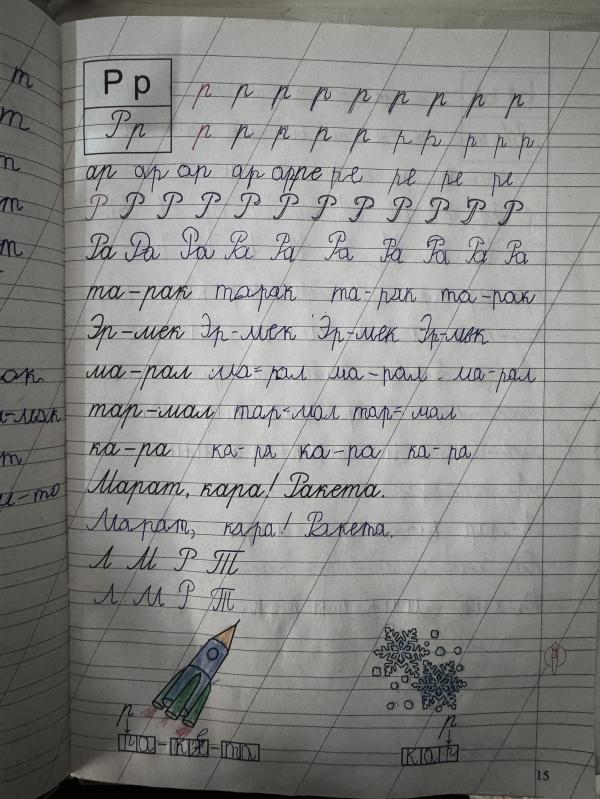 т
т
т
т
т
Р р
Р р
р р р р р р р р р
р р р р р р р р р р
ар ар ар ар арре ре ре ре ре
Р Р Р Р Р Р Р Р Р Р Р Р
Ра Ра Ра Ра Ра Ра Ра Ра Ра Ра
та-рак тарак та-рак та-рак
Эр-мек Эр-мек Эр-мек Эр-мек
ма-рал ма=рал ма-рал ма-рал
тар-мал тар=мал тар=мал
ка-ра ка-ра ка-ра ка-ра
Марат, кара! Ракета.
Марат, кара! Ракета.
Л М Р Т
Л М Р Т
р р
ра-ке-та кар
15